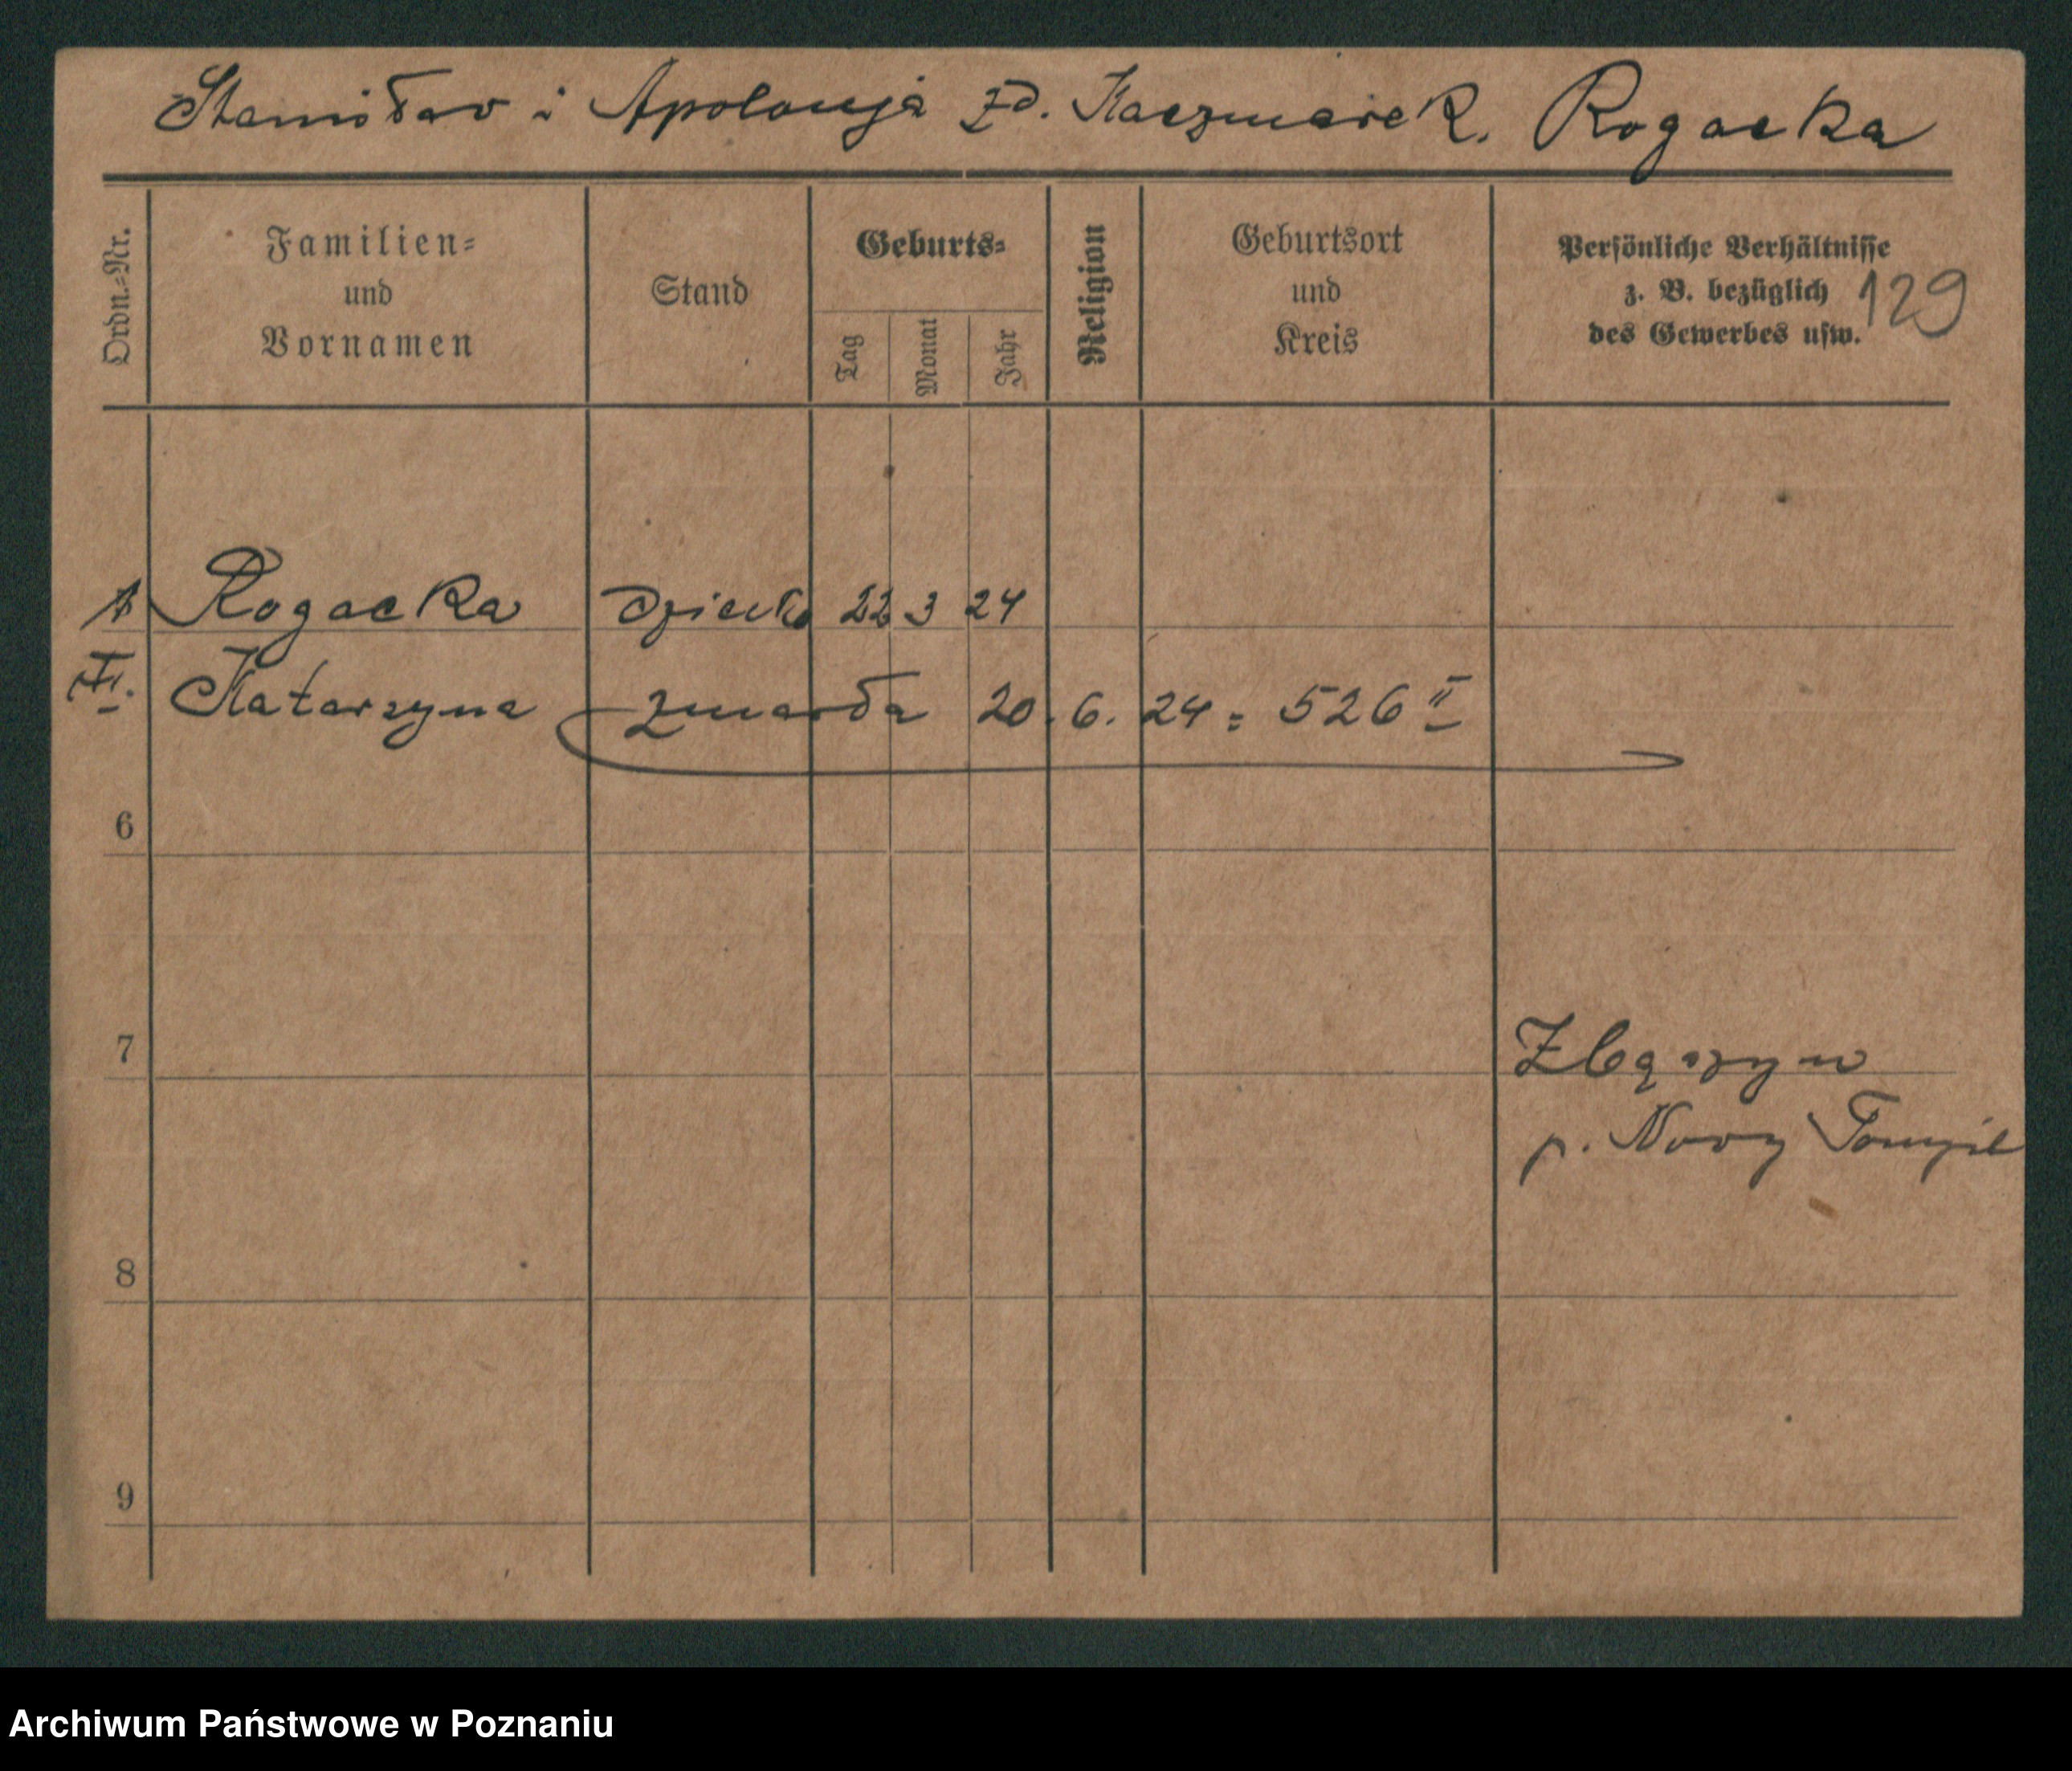 Stanisław i Apolonja zd. Kaczmarek. Rogacka
Ordn.-Nr.
Familien-
und
Vornamen
Stand
Geburts-
Tag
Monat
Jahr
Religion
Geburtsort
und
Kreis
Persönliche Verhältnisse
z. B. bezüglich
des Gewerbes usw.
129
Rogacka dziecko 22 3 24
Katarzyna zmarła 20. 6. 24 = 526 II
6
7
Zbąszyn
p. Nowy Tomyśl
8
9
Archiwum Państwowe w Poznaniu